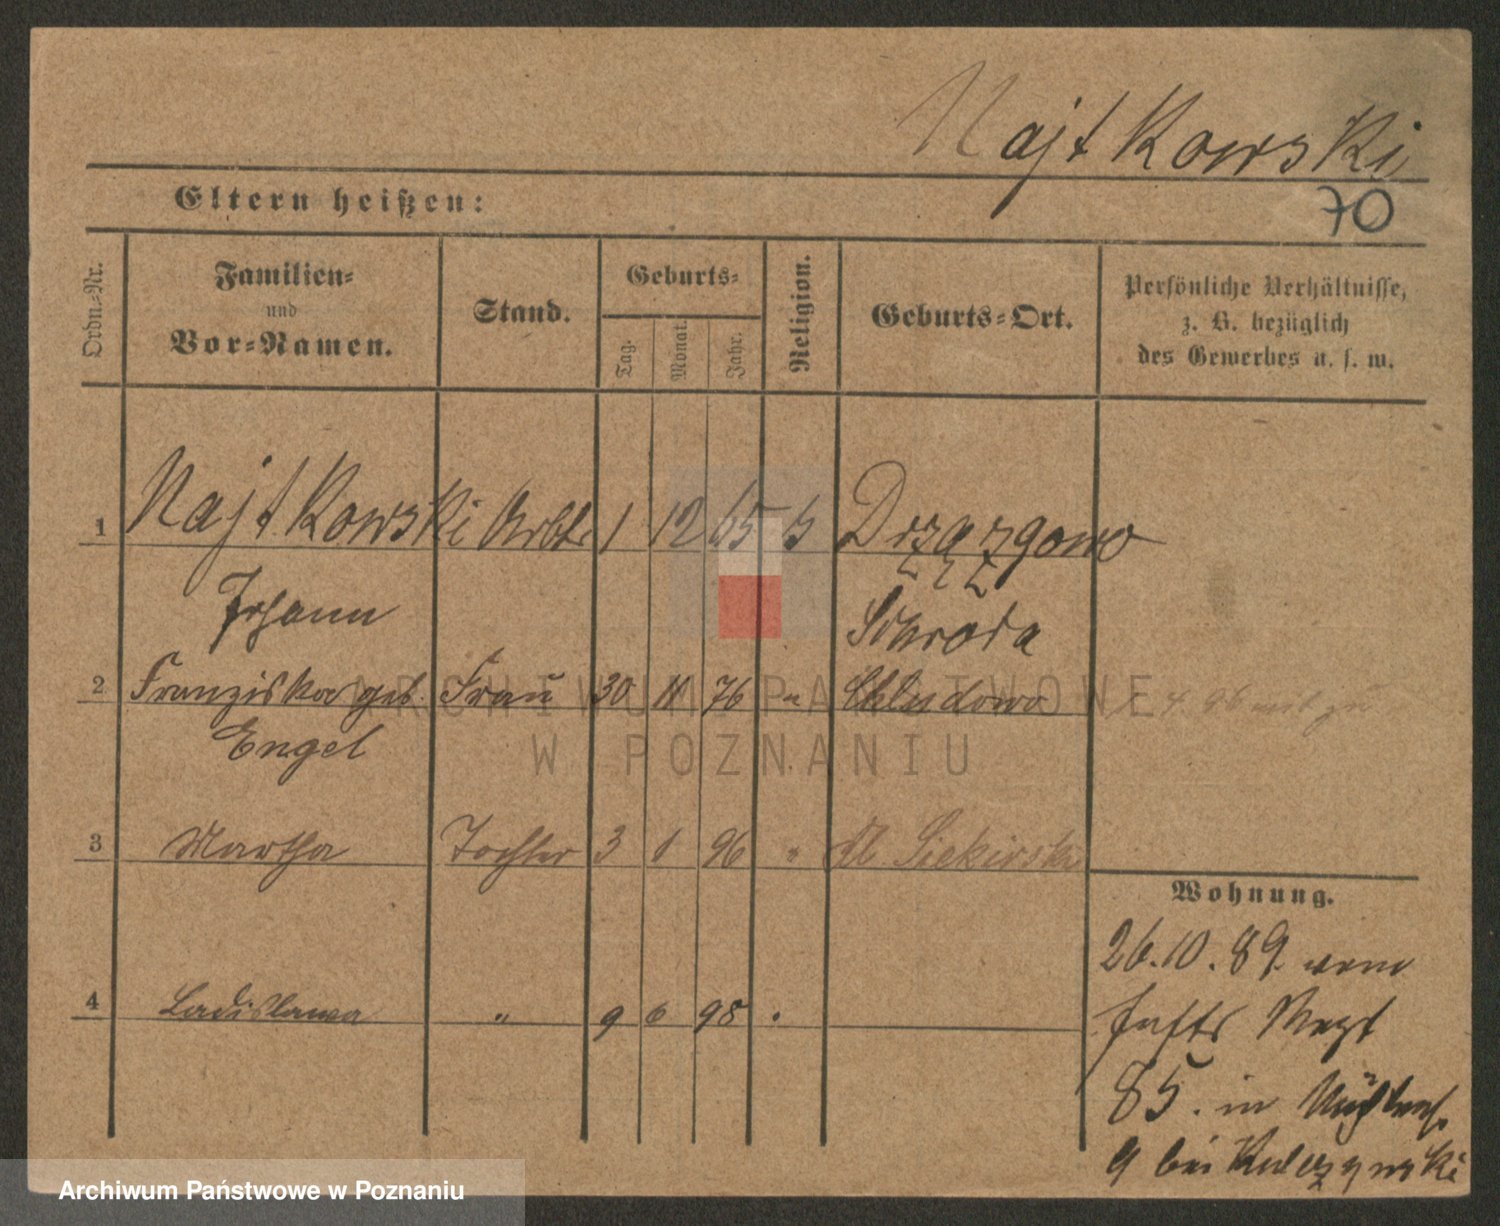 Najtkowski
70
Eltern heißen:
Ordn.-Nr.
Familien-
und
Vor-Namen.
Stand.
Geburts-
Tag.
Monat.
Jahr.
Religion.
Geburts-Ort.
Persönliche Verhältnisse,
z. B. bezüglich
des Gewerbes u. s. w.
1 Najtkowski Arbtr 1 12 65 Drzązgowo
Johann Schroda
2 Franziska geb. Frau 30 76 " Chludowo 4. 96
Engel
3 Martha Tochter 3 96 " Kl. Siekirski
4 Ladislawa " 9 6 98
Wohnung.
26.10.89. vom
85. in
9 bei Kulczynski
ARCHIWUM PAŃSTWOWE
W POZNANIU
Archiwum Państwowe w Poznaniu